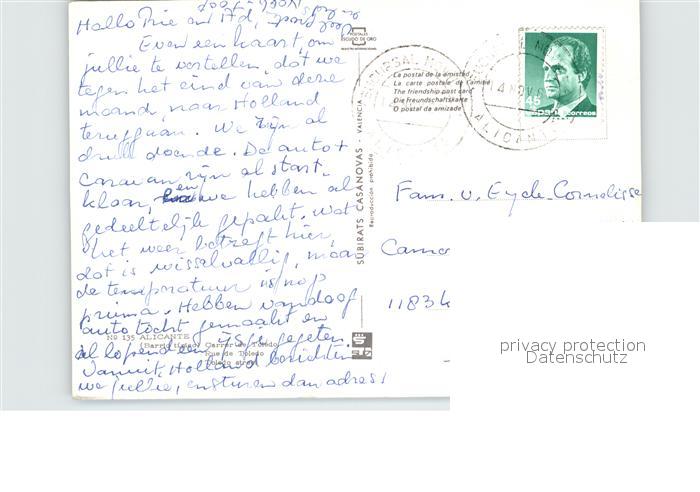 Hallo Rie en Ad,
Even een kaart, om
jullie te vertellen, dat we
tegen het eind van deze
maand, naar Holland
teruggaan. We zijn al
druk doende. De auto +
Caravan zijn al start-
klaar, en we hebben al
gedeeltelijk gepakt. Wat
het weer betreft hier,
dat is wisselvallig, maar
de temperatuur is nog
prima. Hebben vandaag
autotocht gemaakt en
al lopend een ijsje gegeten.
Vanuit Holland berichten
we jullie, en sturen dan adres!
Nº 135 ALICANTE
Carrer de Toledo
Rue de Toledo
Toledo street
POSTALES
ESCUDO DE ORO
SUBIRATS CASANOVAS - VALENCIA
Reproducción prohibida
La postal de la amistad
La carte postale de l'amitié
The friendship post card
Die Freundschaftskarte
O postal da amizade
SUCURSAL
ALICANTE
14 NOV
45
España correos
Fam. v. Eyck-Cornelisse
1183
privacy protection
Datenschutz